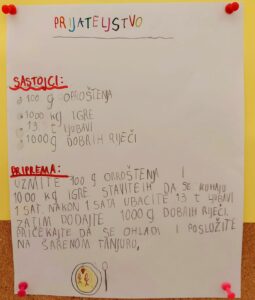 PRIJATELJSTVO
SASTOJCI:
100 g OPROŠTENJA
1000 kg IGRE
13 t LJUBAVI
1000 g DOBRIH RIJEČI
PRIPREMA:
UZMITE 100 g OPROŠTENJA I
1000 kg IGRE STAVITE IH DA SE KUHAJU
1 SAT. NAKON 1 SATA UBACITE 13 t LJUBAVI
ZATIM DODAJTE 1000 g DOBRIH RIJEČI.
PRIČEKAJTE DA SE OHLADI I POSLOŽITE
NA ŠARENOM TANJURU.